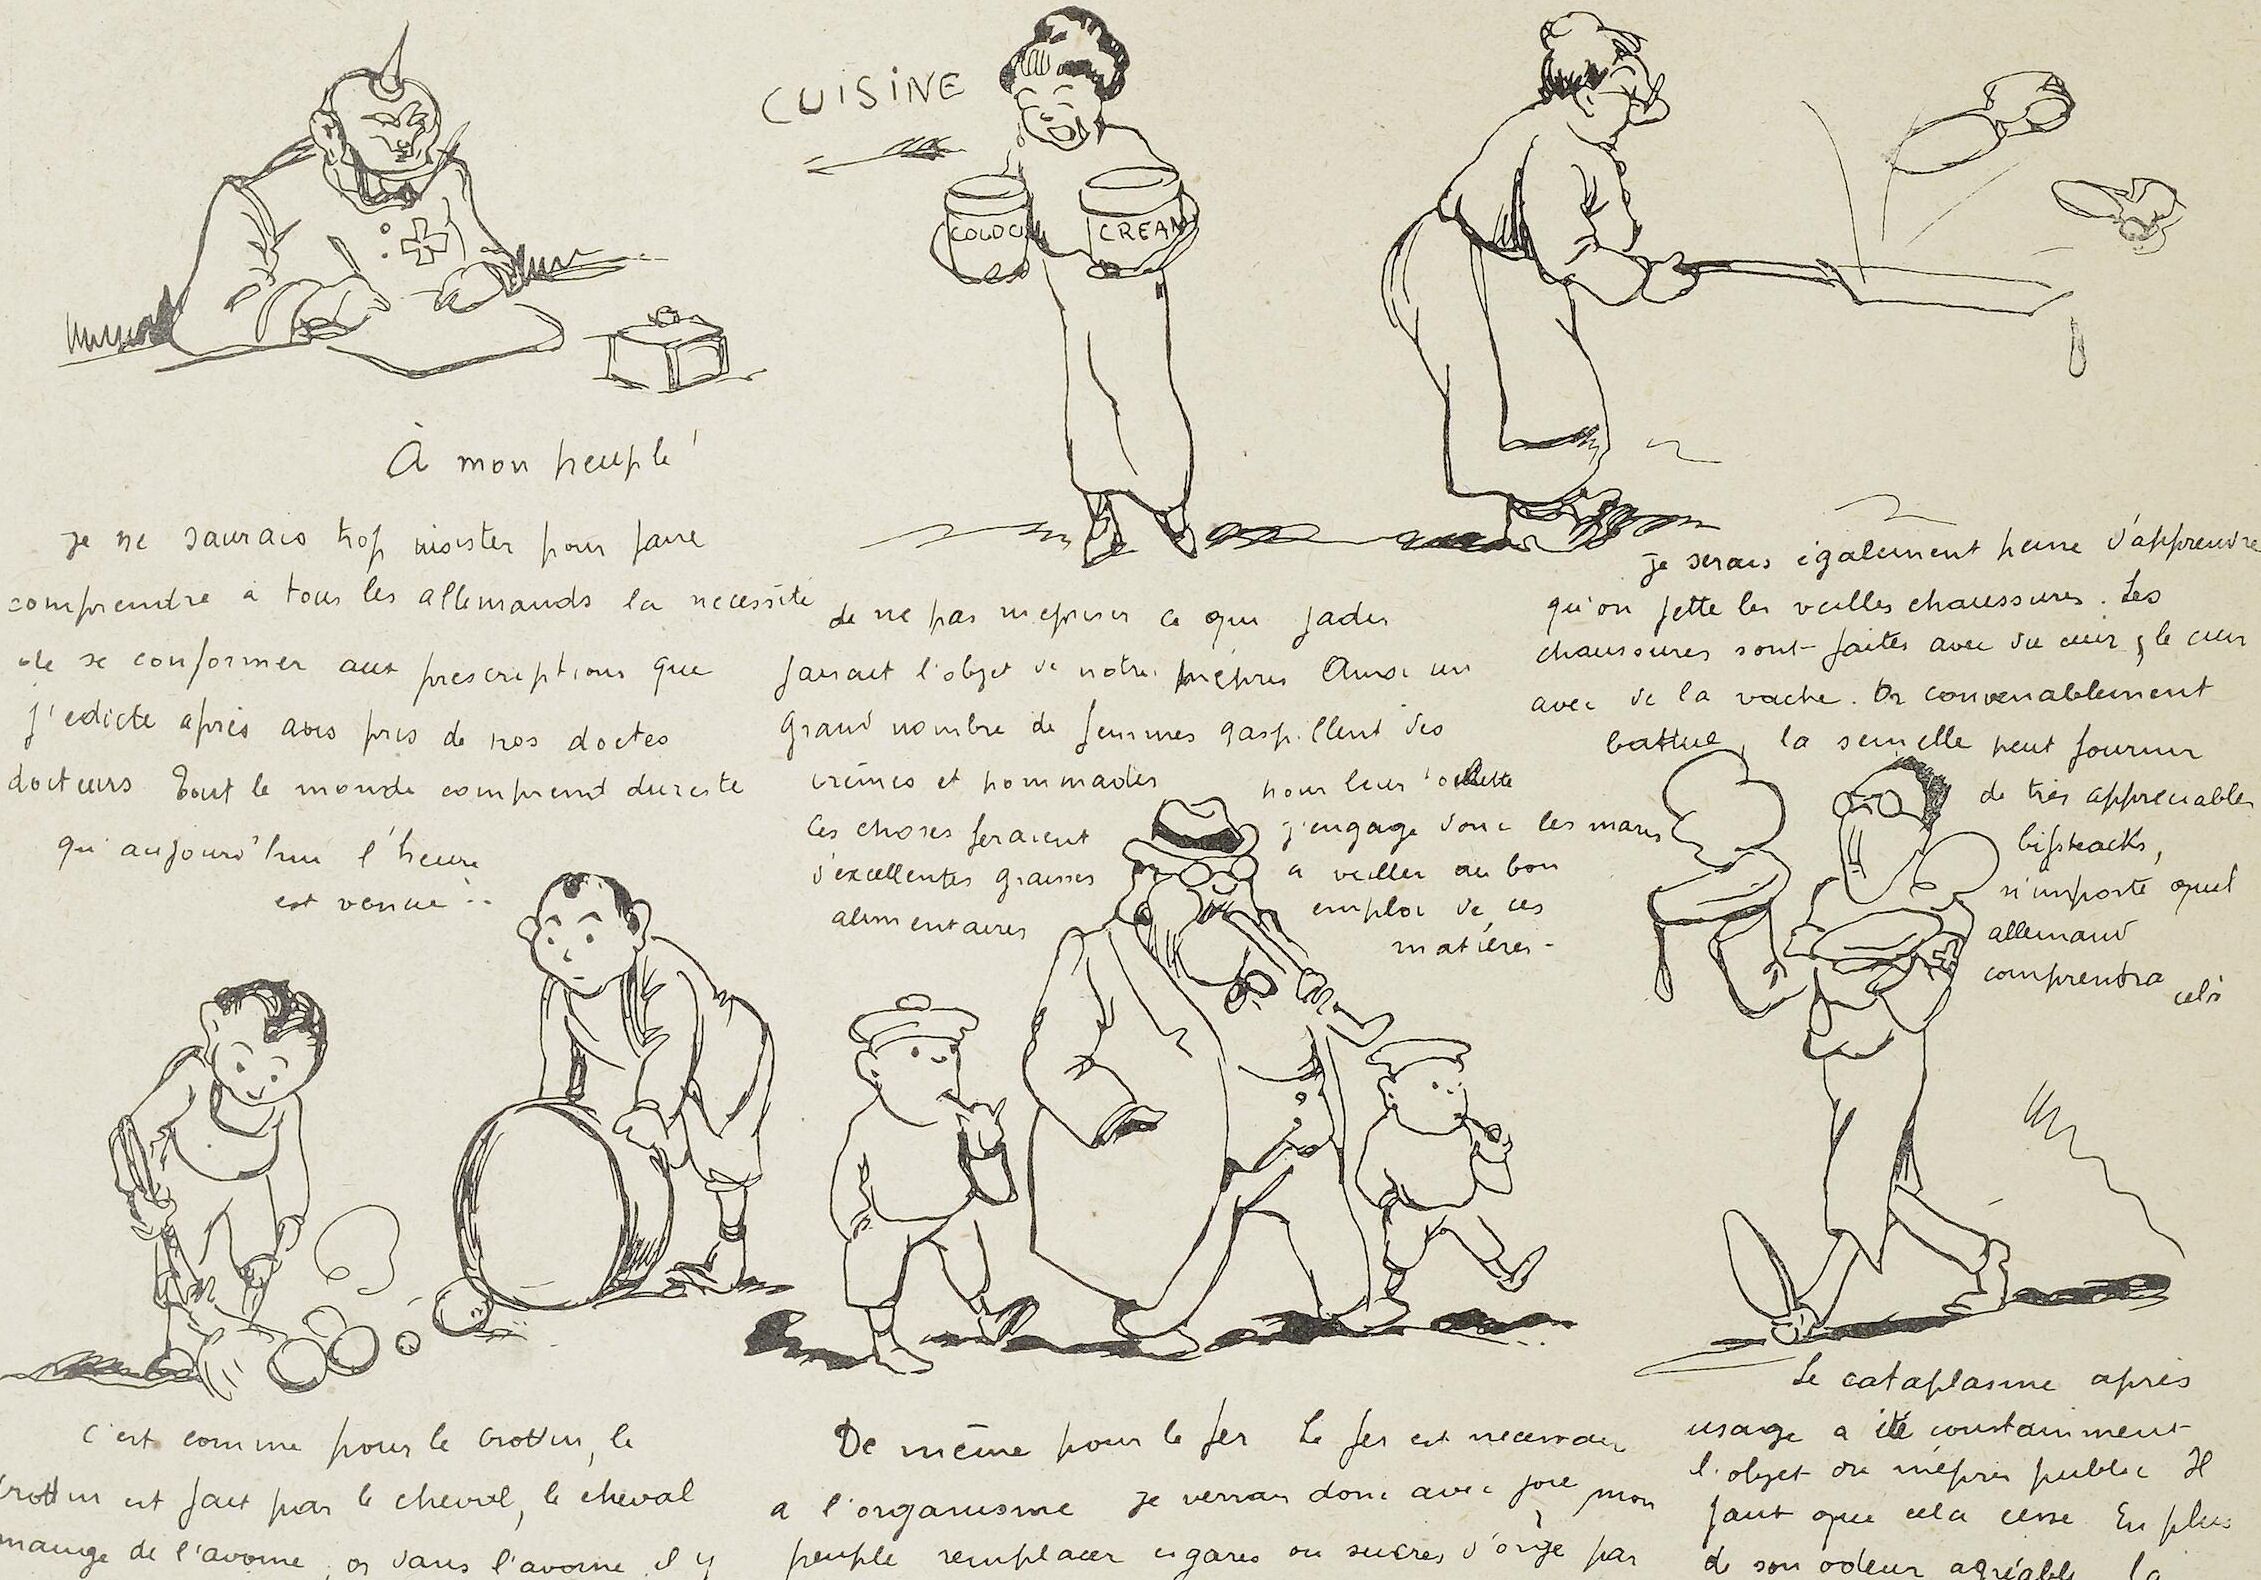 CUISINE
COLD C
CREAM
À mon peuple
je ne saurais trop insister pour faire
comprendre a tous les allemands la necessité
de se conformer aux prescriptions que
j'edicte après avis pris de nos doctes
docteurs Tout le monde comprend dureste
qu'aujourd'hui l'heure
est venue :
de ne pas mepriser ce qui jadis
faisait l'objet de notre mépris Ainsi un
grand nombre de femmes gaspillent des
crèmes et pommades pour leur toilette
Ces choses feraient
d'excellentes graisses
alimentaires
j'engage donc les maris
a veiller au bon
emploi de ces
matières -
je serais également peiné d'apprendre
qu'on jette les vieilles chaussures. Les
chaussures sont faites avec du cuir, le cuir
avec de la vache. Or convenablement
battue, la semelle peut fournir
de très appréciables
bifsteacks,
n'importe quel
allemand
comprendra
cela
C'est comme pour le crottin, le
crottin est fait par le cheval, le cheval
mange de l'avoine, or dans l'avoine il y
De même pour le fer Le fer est necessaire
a l'organisme je verrais donc avec joie mon
peuple remplacer cigares ou sucres d'orge par
Le cataplasme après
usage a été constamment
l'objet du mépris public Il
faut que cela cesse En plus
de son odeur agréable la